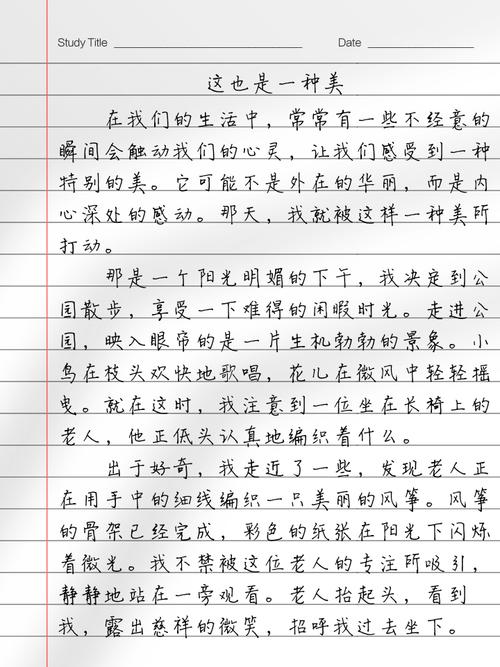 Study Title
Date
这也是一种美
在我们的生活中，常常有一些不经意的
瞬间会触动我们的心灵，让我们感受到一种
特别的美。它可能不是外在的华丽，而是内
心深处的感动。那天，我就被这样一种美所
打动。
那是一个阳光明媚的下午，我决定到公
园散步，享受一下难得的闲暇时光。走进公
园，映入眼帘的是一片生机勃勃的景象。小
鸟在枝头欢快地歌唱，花儿在微风中轻轻摇
曳。就在这时，我注意到一位坐在长椅上的
老人，他正低头认真地编织着什么。
出于好奇，我走近了一些，发现老人正
在用手中的细线编织一只美丽的风筝。风筝
的骨架已经完成，彩色的纸张在阳光下闪烁
着微光。我不禁被这位老人的专注所吸引，
静静地站在一旁观看。老人抬起头，看到
我，露出慈祥的微笑，招呼我过去坐下。